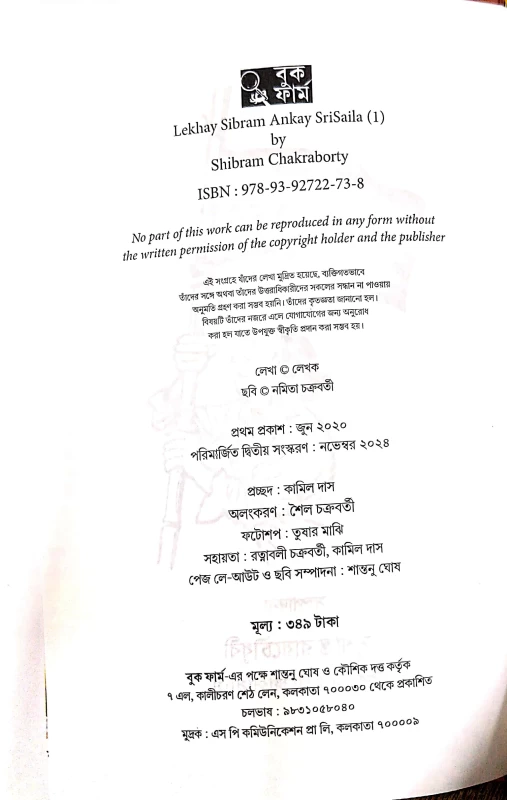 বুক
ফার্ম
Lekhay Sibram Ankay SriSaila (1)
by
Shibram Chakraborty
ISBN : 978-93-92722-73-8
No part of this work can be reproduced in any form without
the written permission of the copyright holder and the publisher
এই সংগ্রহে যাঁদের লেখা মুদ্রিত হয়েছে, ব্যক্তিগতভাবে
তাঁদের সঙ্গে অথবা তাঁদের উত্তরাধিকারীদের সকলের সন্ধান না পাওয়ায়
অনুমতি গ্রহণ করা সম্ভব হয়নি। তাঁদের কৃতজ্ঞতা জানানো হল।
বিষয়টি তাঁদের নজরে এলে যোগাযোগের জন্য অনুরোধ
করা হল যাতে উপযুক্ত স্বীকৃতি প্রদান করা সম্ভব হয়।
লেখা © লেখক
ছবি © নমিতা চক্রবর্তী
প্রথম প্রকাশ : জুন ২০২০
পরিমার্জিত দ্বিতীয় সংস্করণ : নভেম্বর ২০২৪
প্রচ্ছদ : কামিল দাস
অলংকরণ : শৈল চক্রবর্তী
ফটোশপ : তুষার মাঝি
সহায়তা : রত্নাবলী চক্রবর্তী, কামিল দাস
পেজ লে-আউট ও ছবি সম্পাদনা : শান্তনু ঘোষ
মূল্য : ৩৪৯ টাকা
বুক ফার্ম-এর পক্ষে শান্তনু ঘোষ ও কৌশিক দত্ত কর্তৃক
৭ এল, কালীচরণ শেঠ লেন, কলকাতা ৭০০০৩০ থেকে প্রকাশিত
চলভাষ : ৯৮৩১০৫৮০৪০
মুদ্রক : এস পি কমিউনিকেশন প্রা লি, কলকাতা ৭০০০০৯